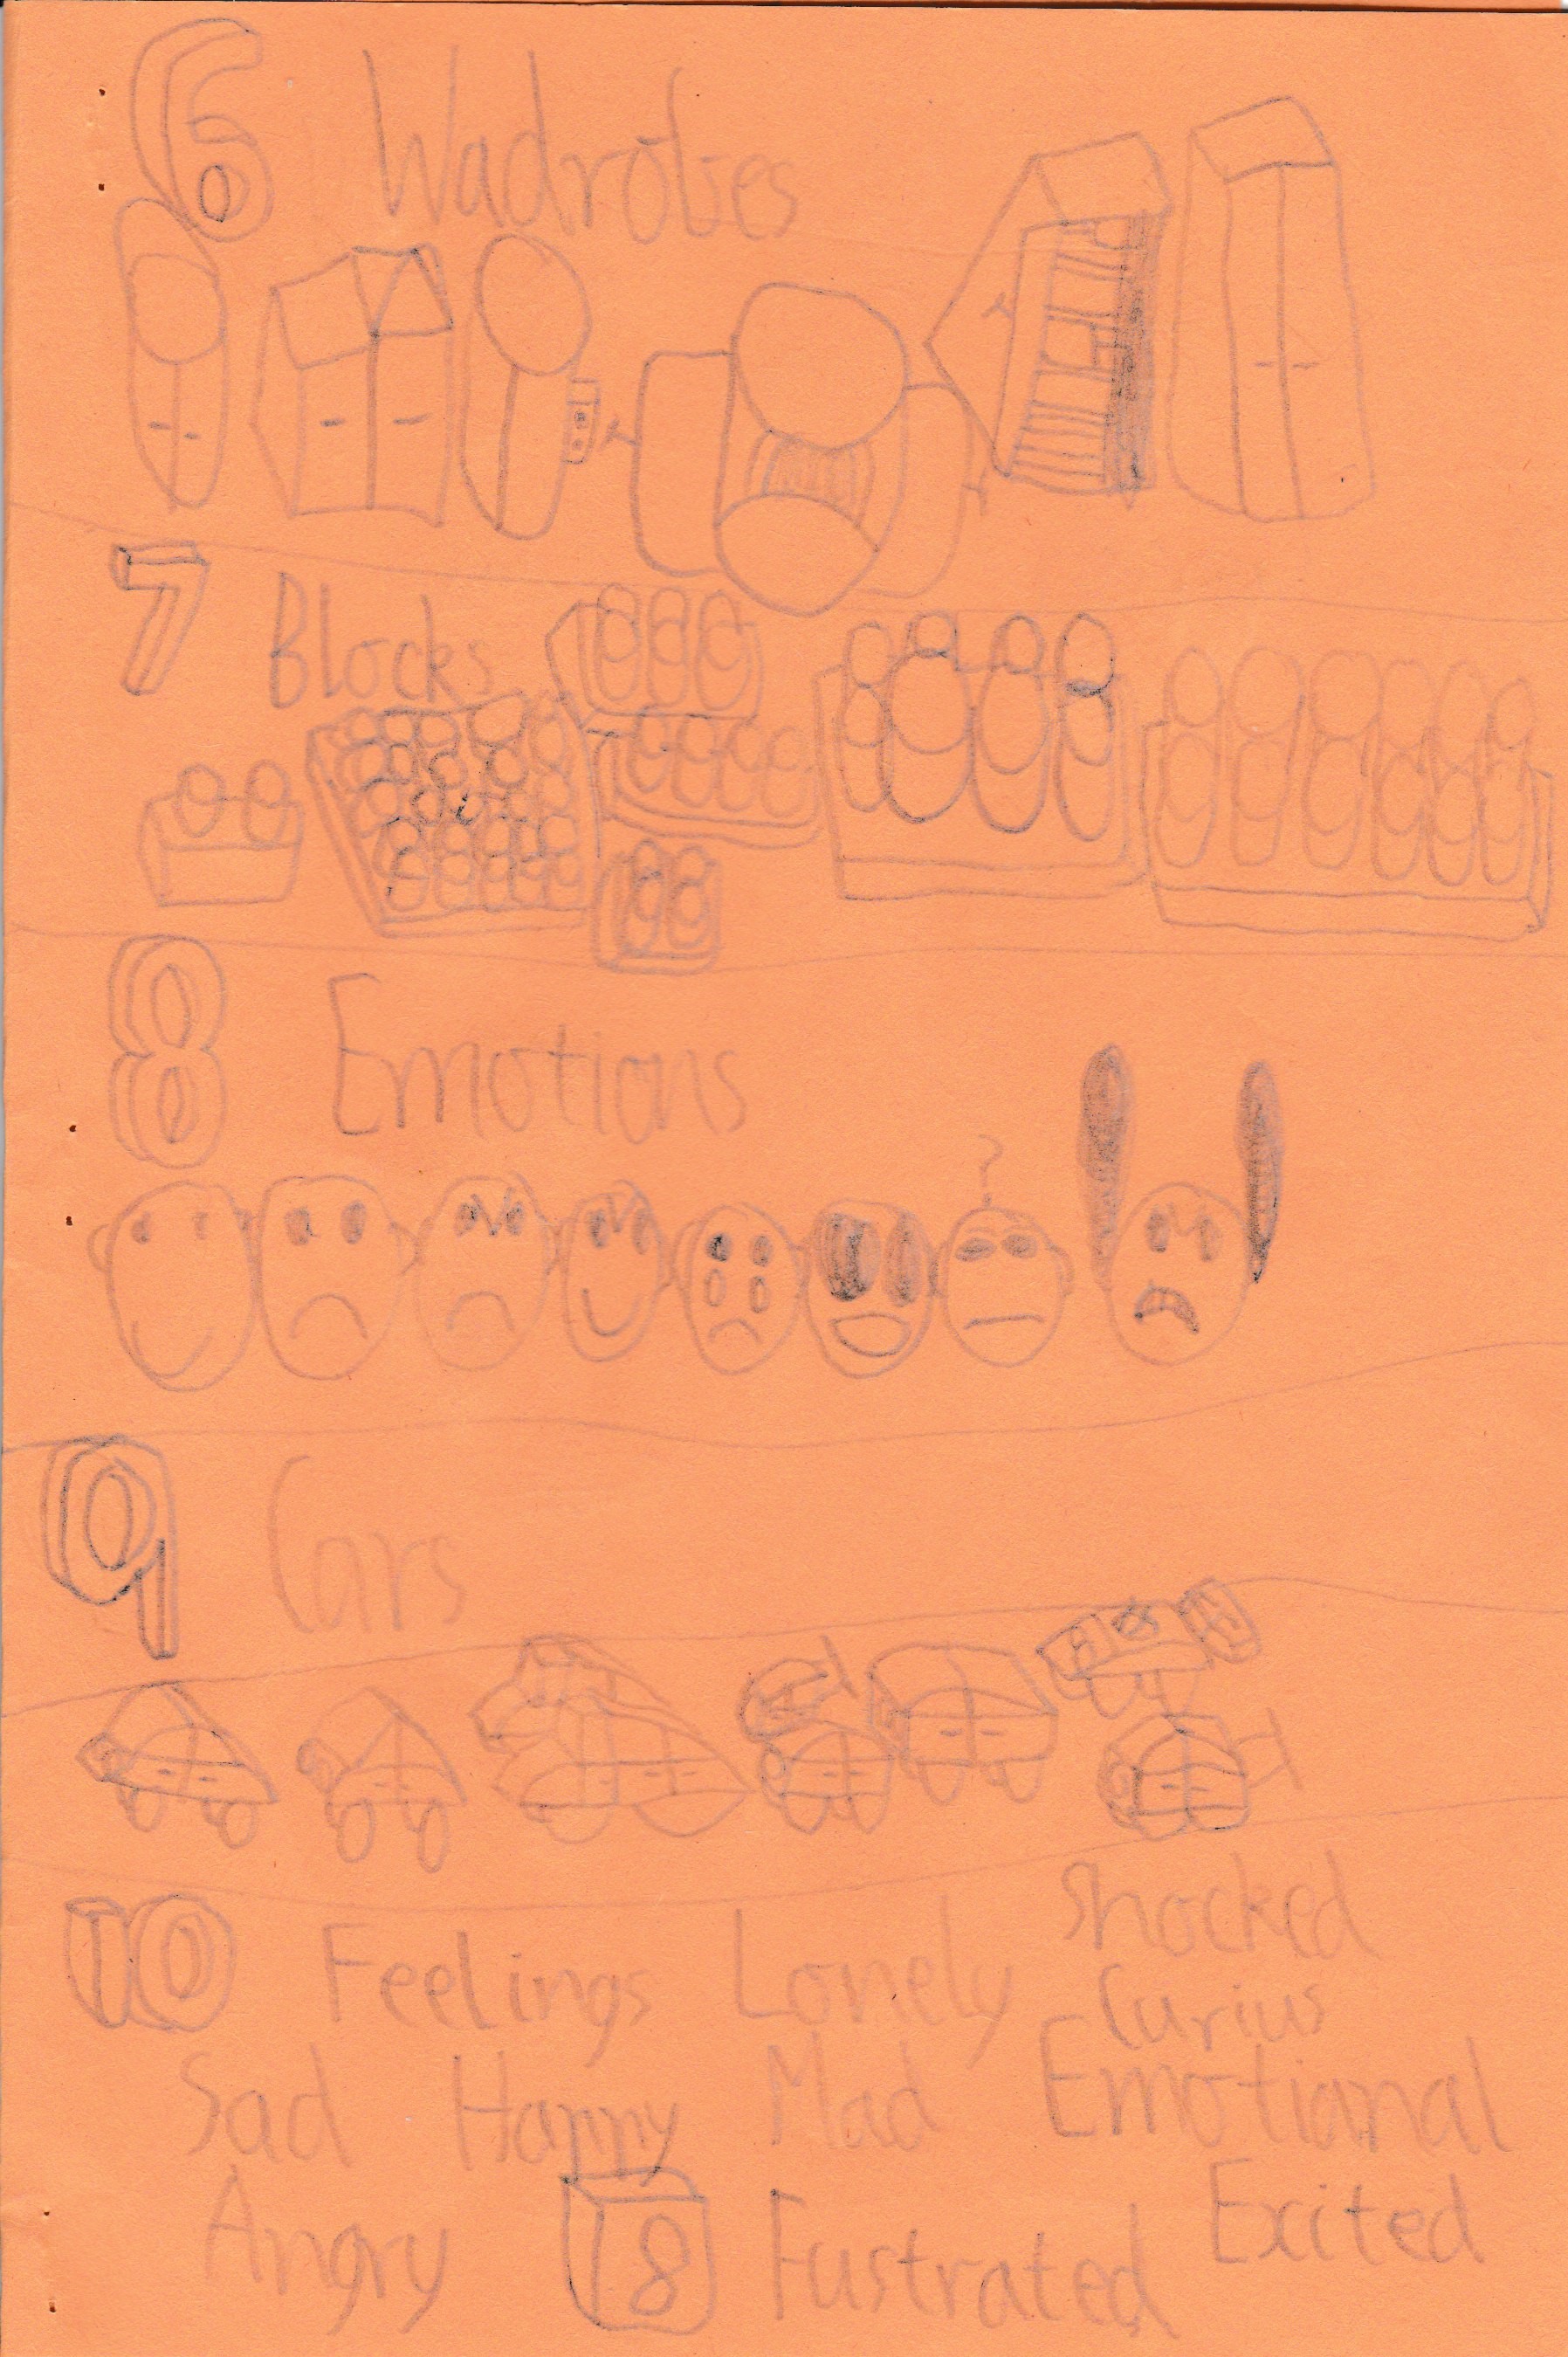 6 Wadrobes
7 Blocks
8 Emotions
?
9 Cars
10 Feelings Lonely Shocked
Curius
Sad Happy Mad Emotional
Angry 18 Fustrated Exited